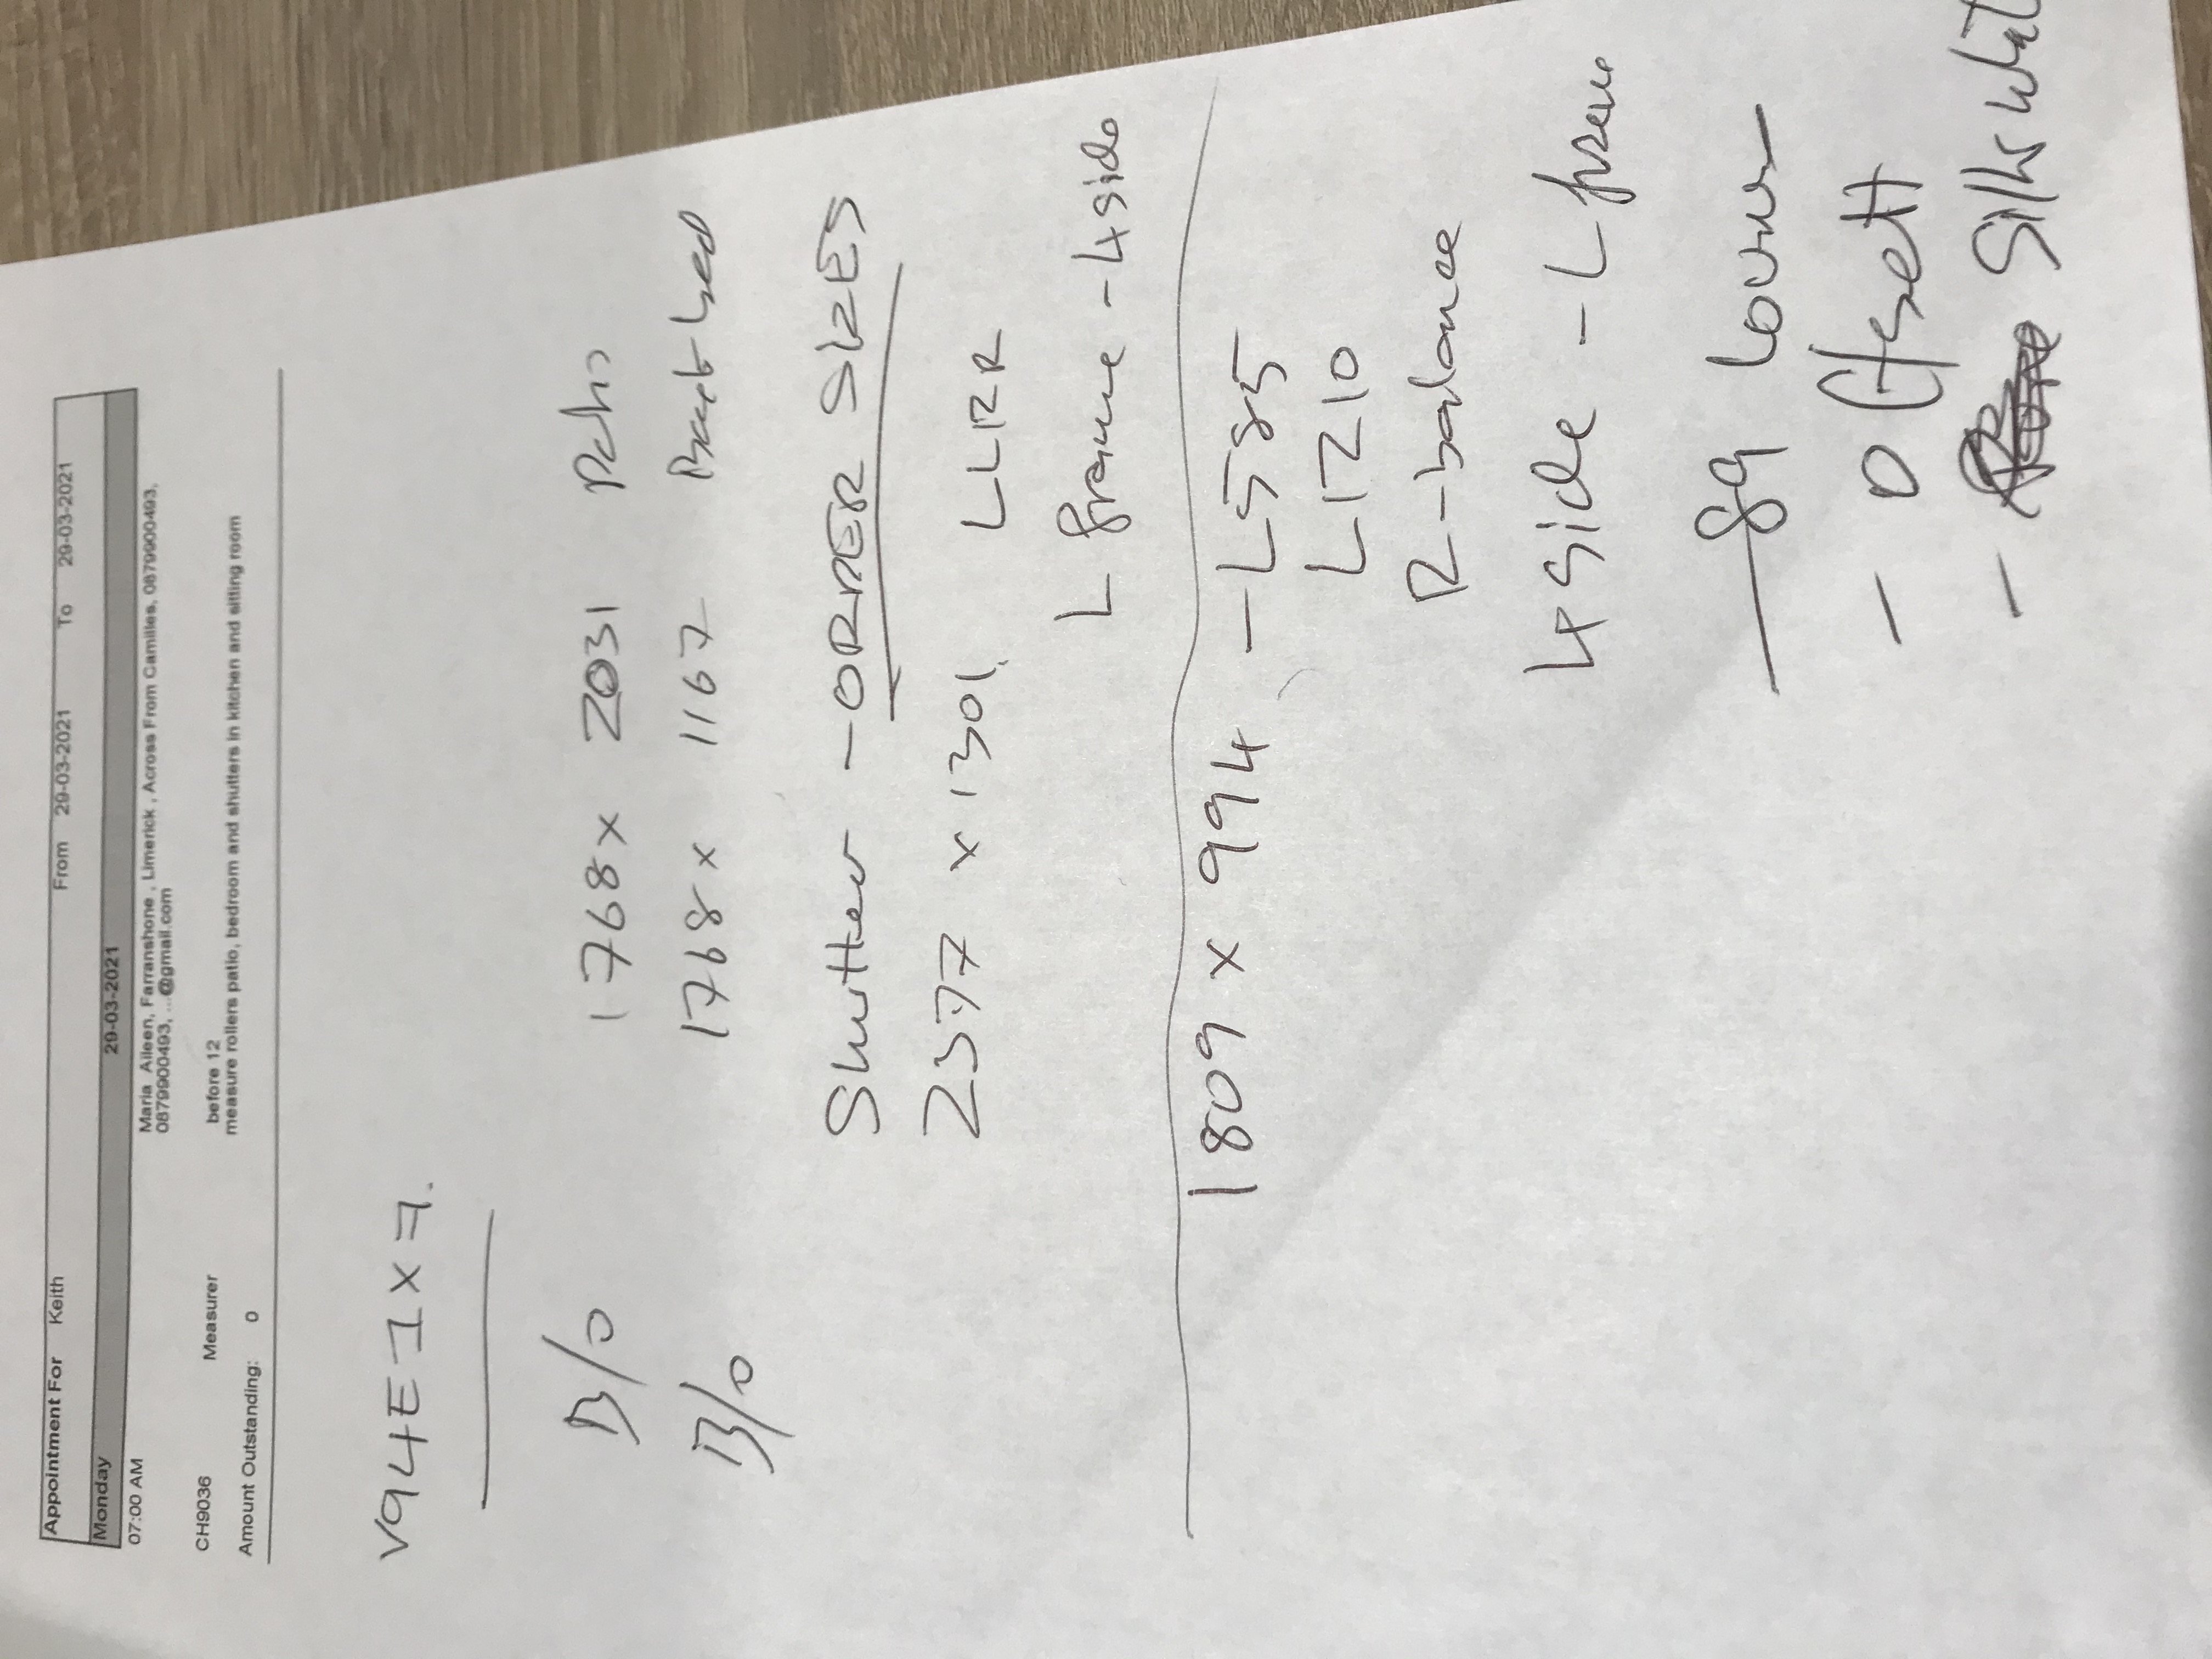 Appointment For Keith From 29-03-2021 To 29-03-2021
Monday 29-03-2021
07:00 AM Maria Aileen, Farranshone , Limerick , Across From Camilles, 0879900493,
0879900493, ...@gmail.com
CH9036 Measurer before 12
measure rollers patio, bedroom and shutters in kitchen and sitting room
Amount Outstanding: 0
V94E1X7.
B/o 1768 x 2031
B/o 1768 x 1167
Shutter - ORDER SIZES
2377 x 1301 LLRR
L frame - 4 side
1809 x 994 - L585
L1210
R-balance
4 side - L frame
89 Louvre
- Offsett
- Silk white